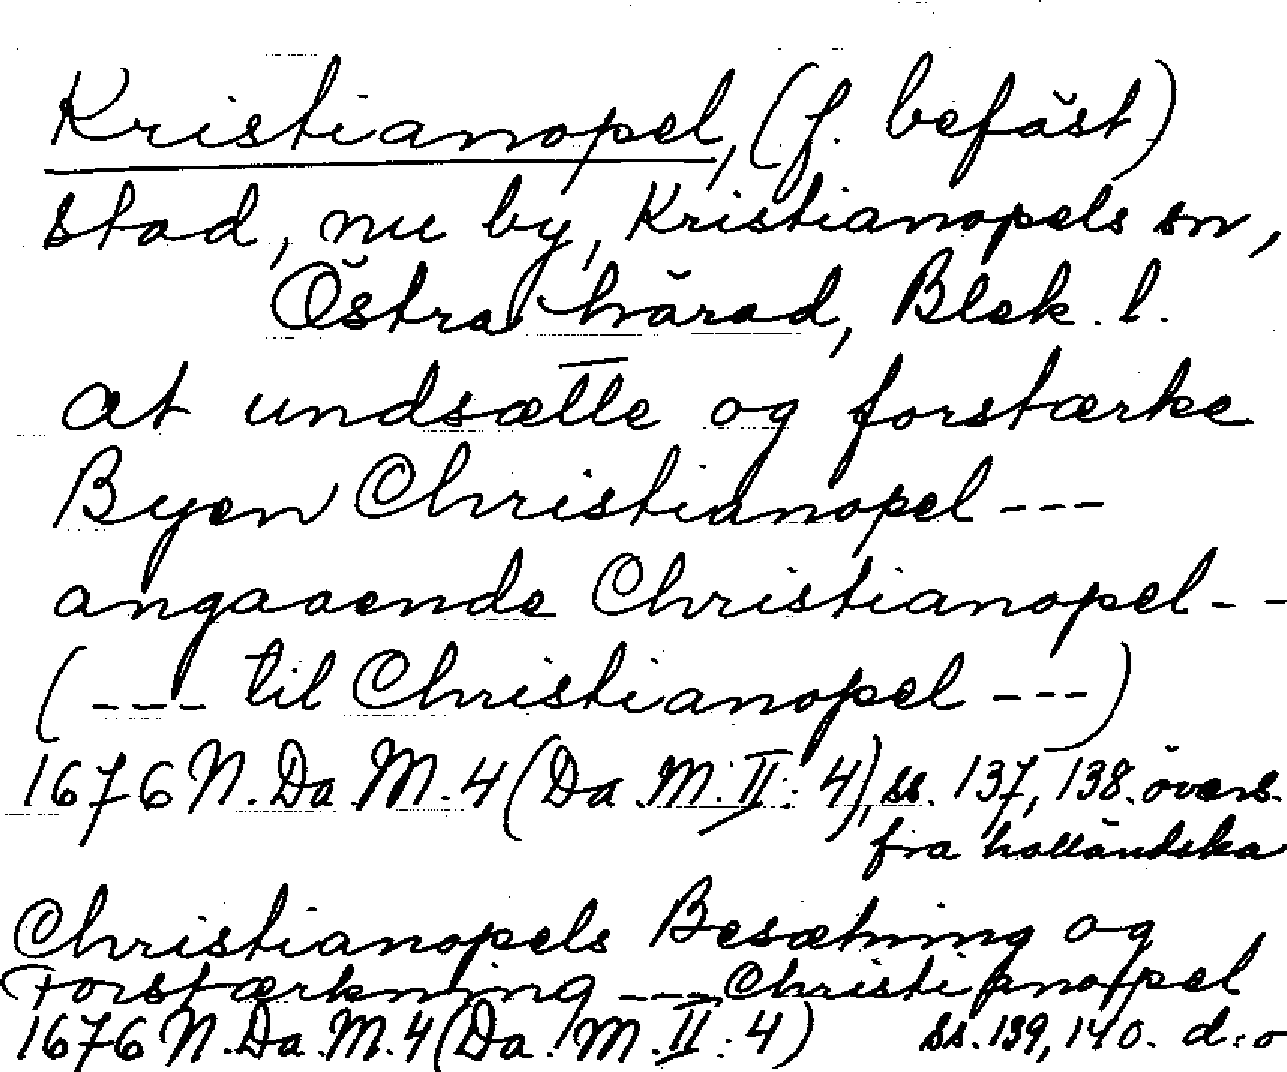 Kristianopel, (f. befäst)
stad, nu by, Kristianopels sn,
Östra härad, Blek. l.
at undsætte og forstærke
Byen Christianopel ---
angaaende Christianopel - -
(--- til Christianopel ---)
1676 N. Da. M. 4 (Da. M. II: 4), ss. 137, 138. övers.
fra holländska
Christianopels Besætning og
Forstærkning --- Christianopel
1676 N. Da. M. 4 (Da. M. II: 4) ss. 139, 140. d:o